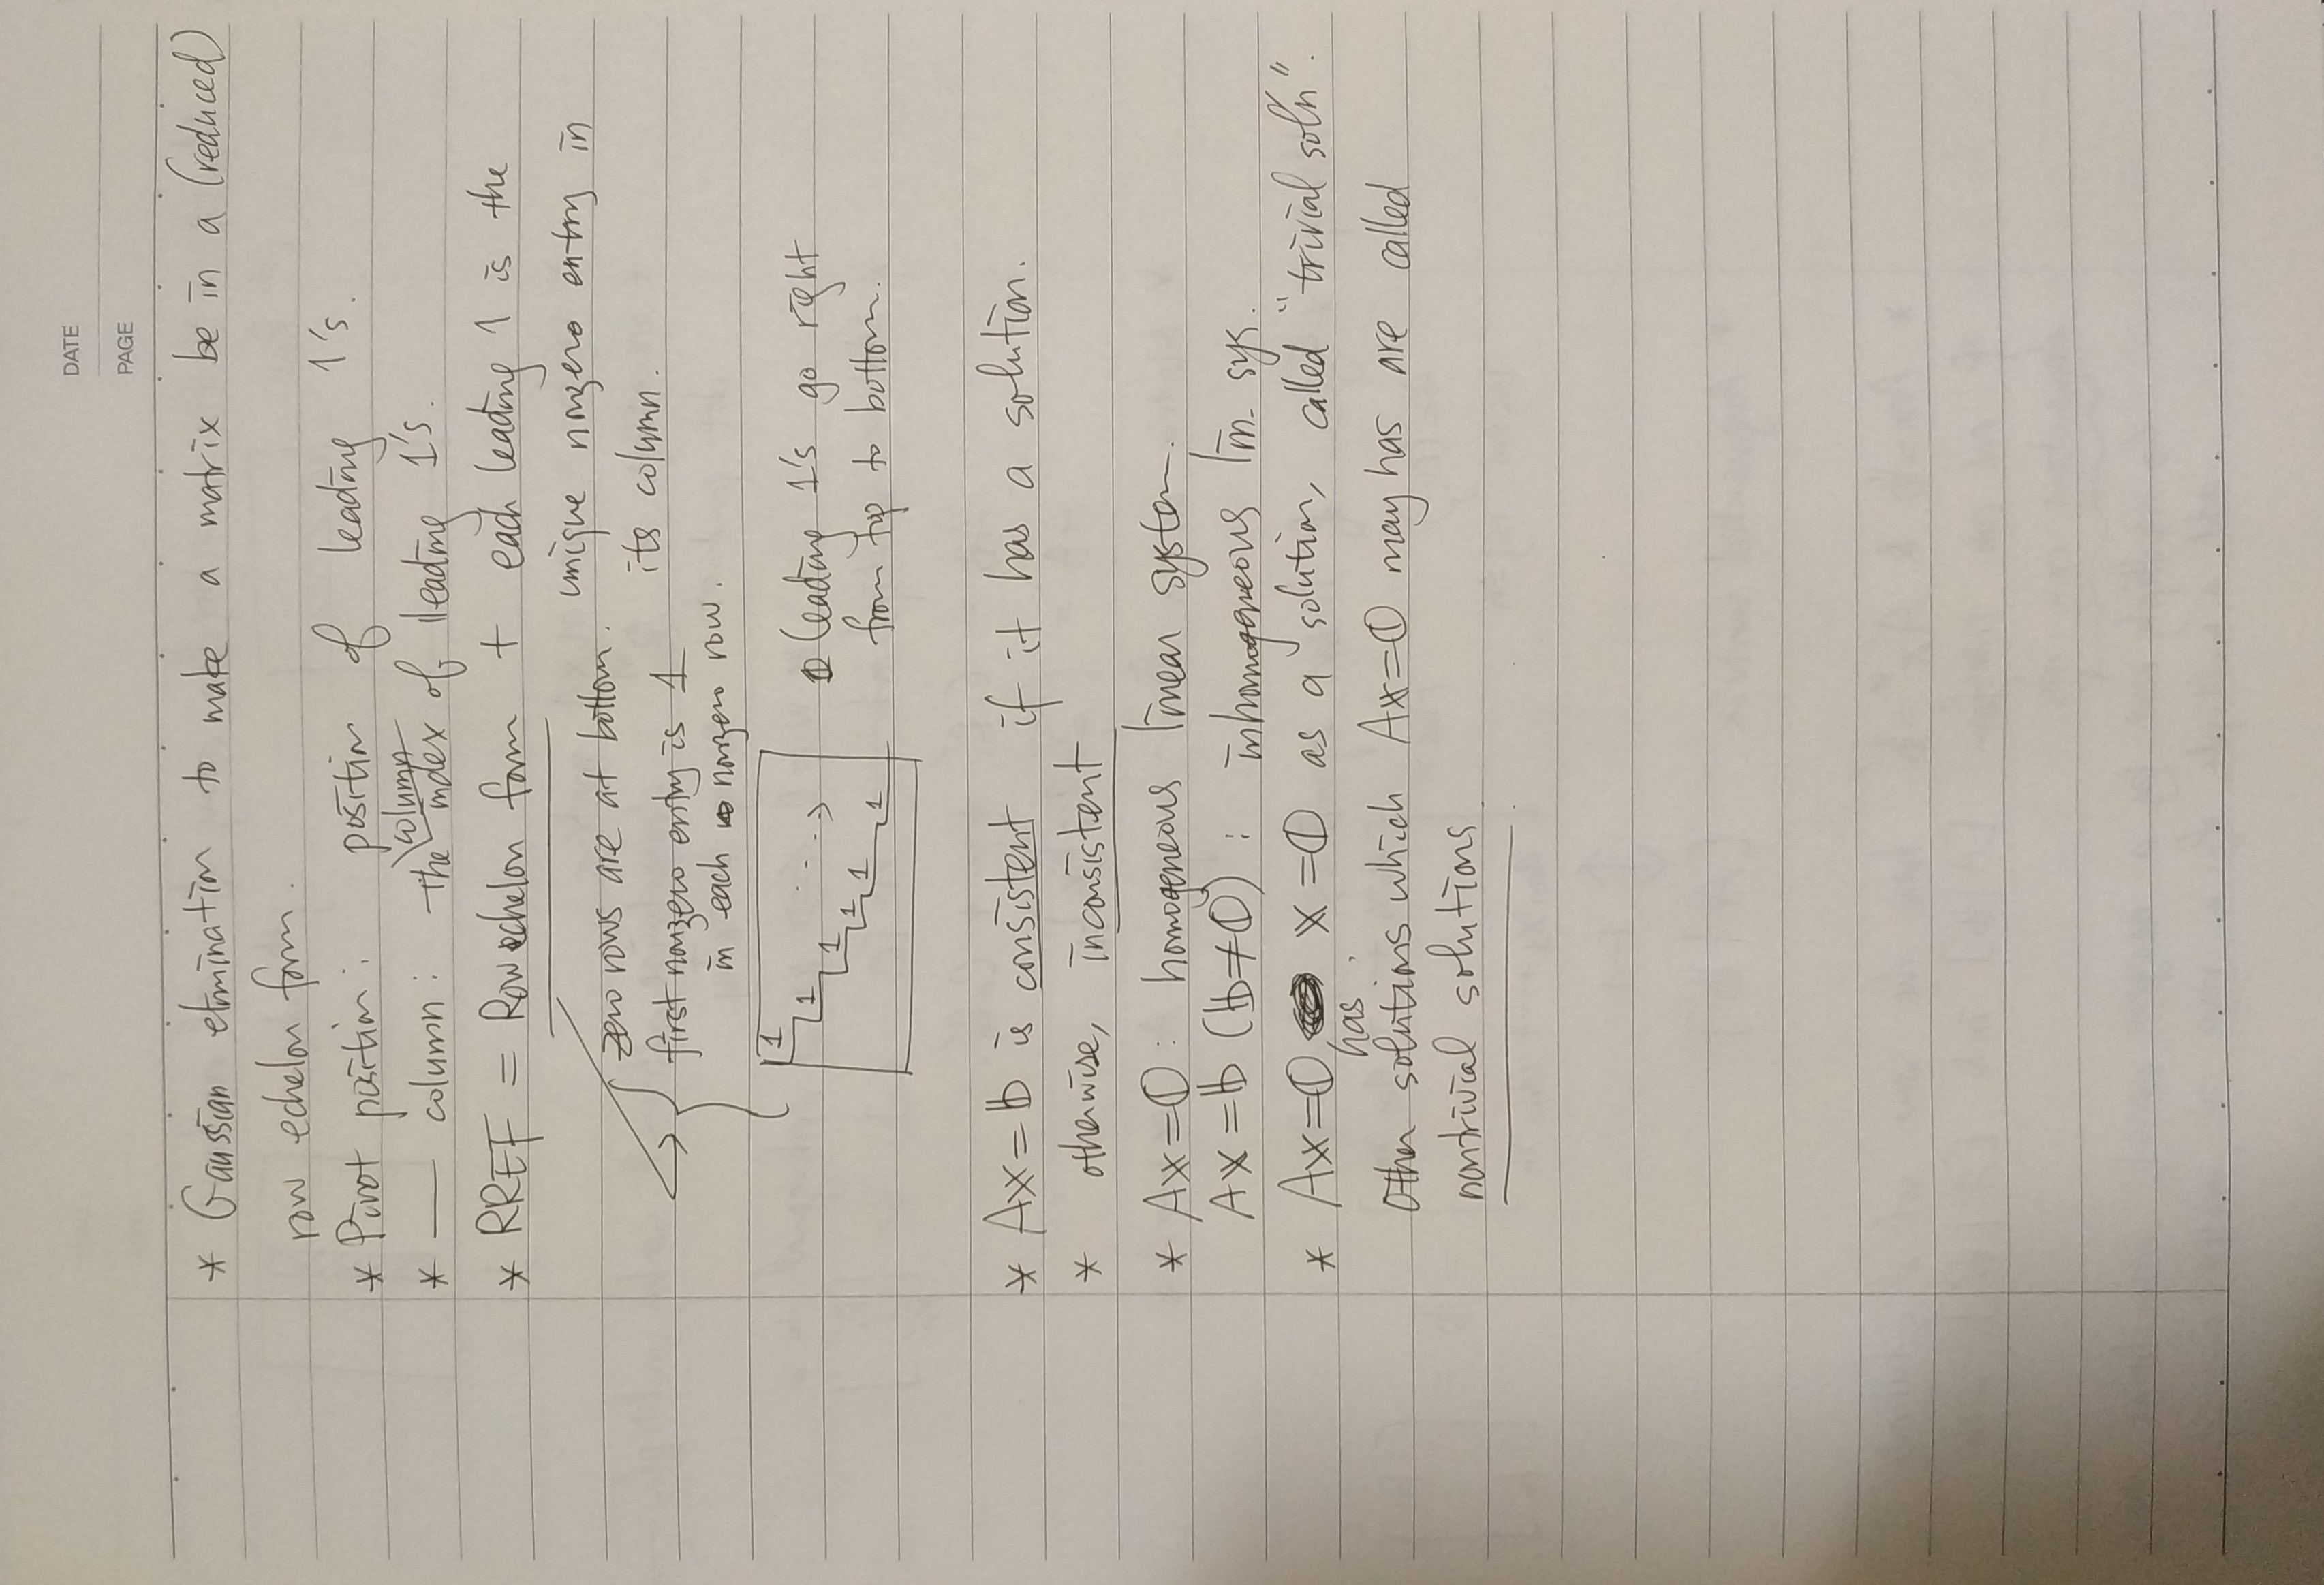 DATE
PAGE
* Gaussian elimination to make a matrix be in a (reduced)
row echelon form.
* Pivot position: position of leading 1's.
* — column: the column index of leading 1's.
* RREF = Row echelon form + each leading 1 is the
unique nonzero entry in
its column.
zero rows are at bottom.
first nonzero entry is 1
in each nonzero row.
1
1
1
1 1
1
leading 1's go right
from top to bottom.
* A𝕩 = 𝕓 is consistent if it has a solution.
* otherwise, inconsistent
* A𝕩 = 𝟘 : homogeneous linear system.
A𝕩 = 𝕓 (𝕓 ≠ 𝟘) : inhomogeneous lin. sys.
* A𝕩 = 𝟘 has 𝕩 = 𝟘 as a solution, called "trivial sol'n".
Other solutions which A𝕩 = 𝟘 may has are called
nontrivial solutions.